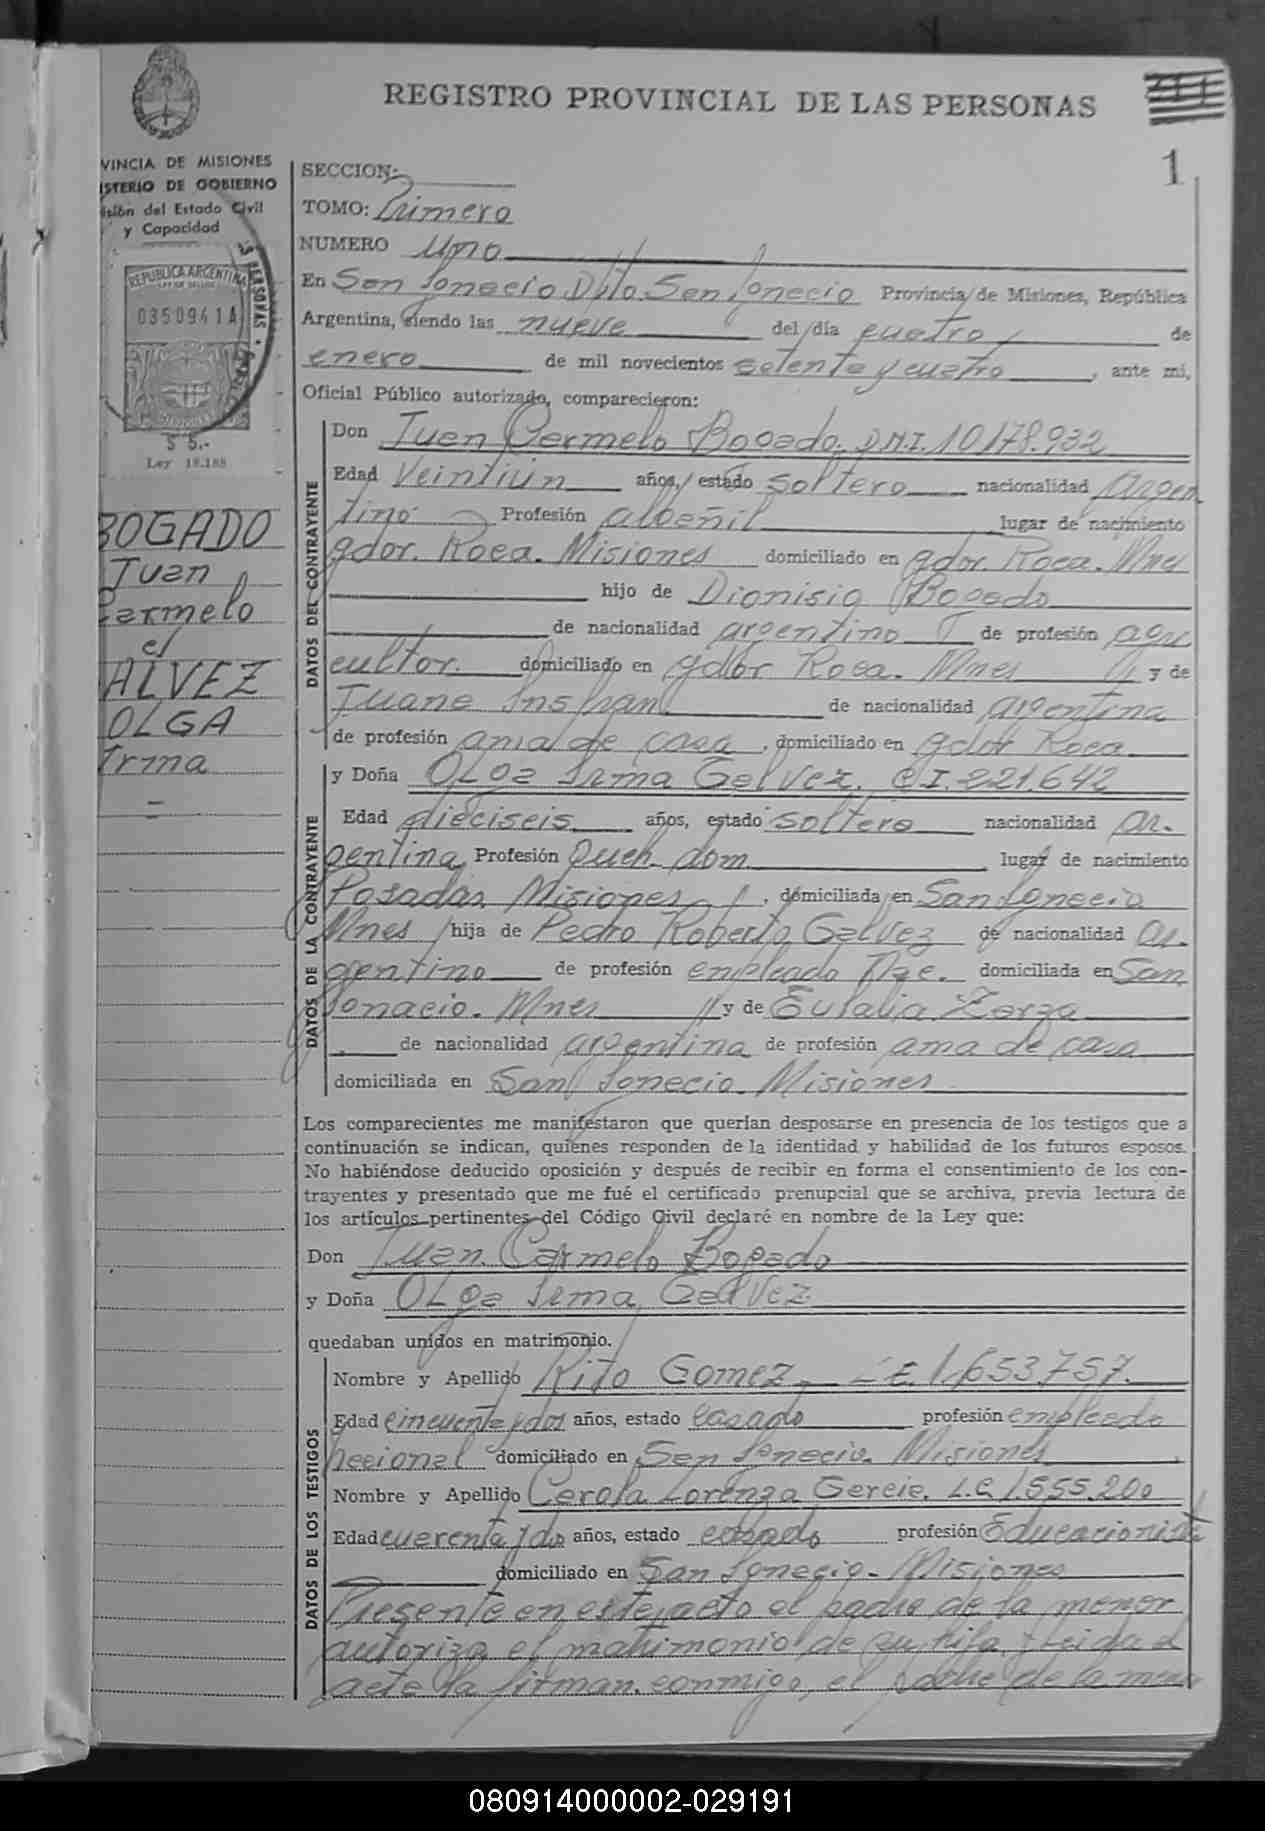 REGISTRO PROVINCIAL DE LAS PERSONAS
1
VINCIA DE MISIONES
ISTERIO DE GOBIERNO
isión del Estado Civil
y Capacidad
REPUBLICA ARGENTINA
0350941A
$ 5.-
Ley 18.188
BOGADO
Juan
Carmelo
c/
ALVEZ
OLGA
Irma
SECCION:
TOMO: Primero
NUMERO Uno
En San Ignacio Dpto. San Ignacio Provincia de Misiones, República
Argentina, siendo las nueve del día cuatro de
enero de mil novecientos setenta y cuatro, ante mi,
Oficial Público autorizado, comparecieron:
DATOS DEL CONTRAYENTE
Don Juan Carmelo Bogado. D.N.I. 10.178.932
Edad Veintiún años, estado soltero nacionalidad Argen
tino Profesión albañil lugar de nacimiento
gdor. Roca. Misiones domiciliado en gdor. Roca. Mnes
hijo de Dionisio Bogado
de nacionalidad argentino de profesión agri
cultor. domiciliado en gdor Roca. Mnes y de
Juana de nacionalidad argentina
de profesión ama de casa, domiciliado en gdor Roca
DATOS DE LA CONTRAYENTE
y Doña OLga Irma Galvez. C.I. 221.642
Edad dieciseis años, estado soltera nacionalidad ar.
gentina Profesión Queh. dom. lugar de nacimiento
Posadas Misiones, domiciliada en San Ignacio
Mnes hija de Pedro Roberto Galvez de nacionalidad ar.
gentino de profesión empleado Nac. domiciliada en San
Ignacio. Mnes y de Eulalia Zarza
de nacionalidad argentina de profesión ama de casa
domiciliada en San Ignacio. Misiones
Los comparecientes me manifestaron que querían desposarse en presencia de los testigos que a
continuación se indican, quienes responden de la identidad y habilidad de los futuros esposos.
No habiéndose deducido oposición y después de recibir en forma el consentimiento de los con-
trayentes y presentado que me fué el certificado prenupcial que se archiva, previa lectura de
los artículos pertinentes del Código Civil declaré en nombre de la Ley que:
Don Juan Carmelo Bogado
y Doña OLga Irma Galvez
quedaban unidos en matrimonio.
DATOS DE LOS TESTIGOS
Nombre y Apellido Rito Gomez L.E. 1.653.757.
Edad cincuenta y dos años, estado casado profesión empleado
nacional domiciliado en San Ignacio. Misiones
Nombre y Apellido Carola Lorenza Garcia. L.C. 1.555.200
Edad cuarenta y dos años, estado casado profesión Educacionista
domiciliado en San Ignacio - Misiones
Presente en este acto el padre de la menor
autoriza el matrimonio de su hija. Leida el
acta la firman conmigo, el padre de la men
080914000002-029191